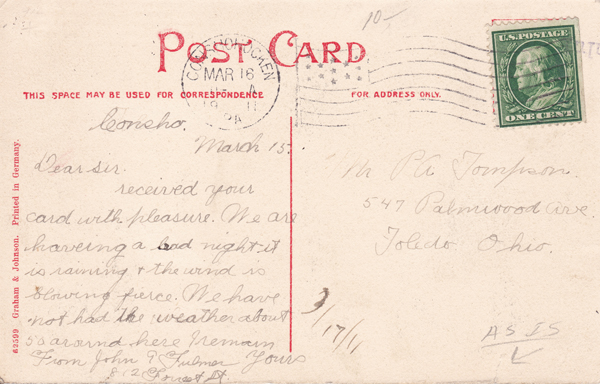 10-
POST CARD
CONSHOHOCKEN
MAR 16
A
1911
PA.
U.S. POSTAGE
ONE CENT
THIS SPACE MAY BE USED FOR CORRESPONDENCE
FOR ADDRESS ONLY.
Consho.
March 15.
Dear Sir.
received your
card with pleasure. We are
haveing a bad night it
is raining & the wind is
blowing fierce. We have
not had the weather about
50 around here I remain
From John F Fulmer Yours
812 Forest St.
Mr P A Tompson.
547 Palmwood Ave.
Toledo Ohio.
3/17/11
AS IS
62599 Graham & Johnson. Printed in Germany.